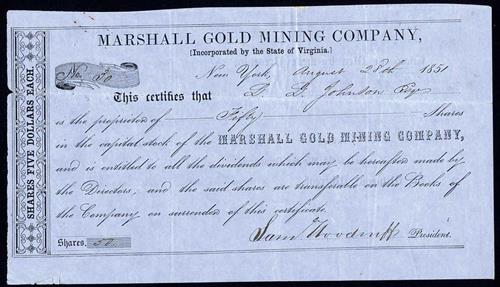 MARSHALL GOLD MINING COMPANY,
[Incorporated by the State of Virginia.]
SHARES FIVE DOLLARS EACH.
No. 50
New York, August 28th 1851
This certifies that Johnson Esq
is the proprietor of Fifty Shares
in the capital stock of the MARSHALL GOLD MINING COMPANY,
and is entitled to all the dividends which may be hereafter made by
the Directors, and the said shares are transferable on the Books of
the Company on surrender of this certificate.
Shares, 50 Sam Woodruff President.